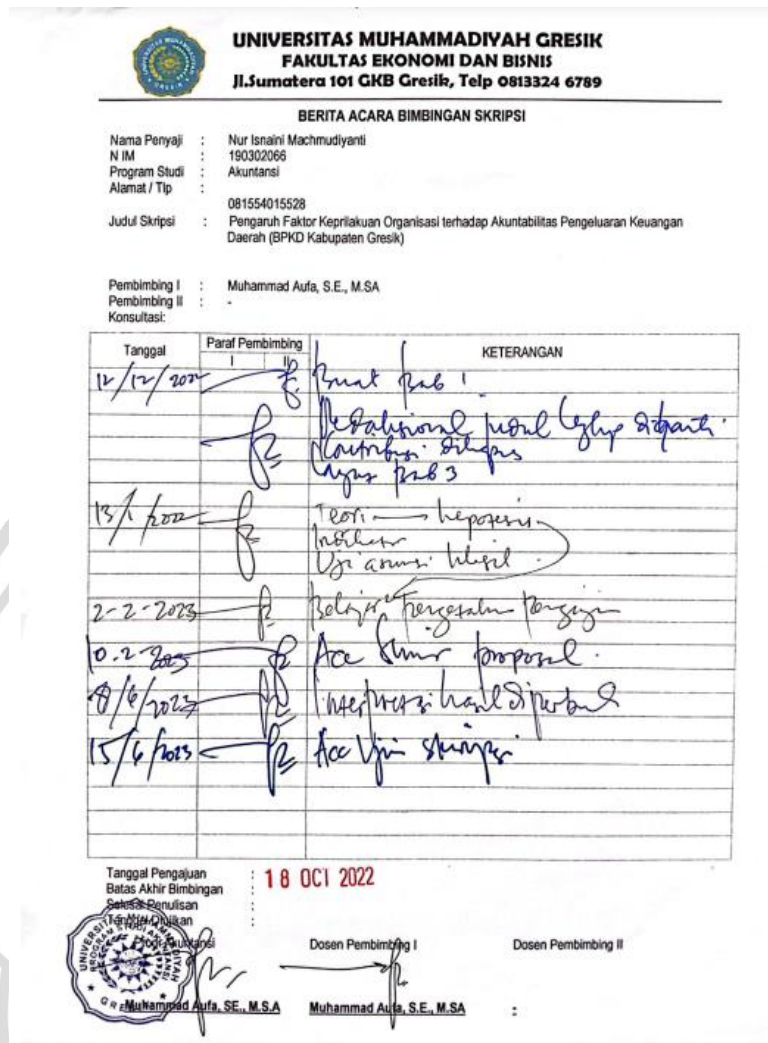 UNIVERSITAS MUHAMMADIYAH GRESIK
FAKULTAS EKONOMI DAN BISNIS
Jl.Sumatera 101 GKB Gresik, Telp 0813324 6789
BERITA ACARA BIMBINGAN SKRIPSI
Nama Penyaji : Nur Isnaini Machmudiyanti
N IM : 190302066
Program Studi : Akuntansi
Alamat / Tlp :
081554015528
Judul Skripsi : Pengaruh Faktor Keprilakuan Organisasi terhadap Akuntabilitas Pengeluaran Keuangan
Daerah (BPKD Kabupaten Gresik)
Pembimbing I : Muhammad Aufa, S.E., M.SA
Pembimbing II : -
Konsultasi:
Tanggal Paraf Pembimbing KETERANGAN
I II
12/12/2022 Buat Bab 1
judul diganti
Kontribusi dihapus
Bab 3
13/1/2022 Teori hipotesis
Uji asumsi
2-2-2023 Belajar
10.2.2023 Acc proposal.
8/6/2023 Interpretasi hasil
15/6/2023 Acc Ujian skripsi
Tanggal Pengajuan :
Batas Akhir Bimbingan : 18 OCT 2022
Selesai Penulisan :
Tanggal Diujikan :
Prodi Akuntansi Dosen Pembimbing I Dosen Pembimbing II
Muhammad Aufa, SE., M.S.A Muhammad Aufa, S.E., M.SA :